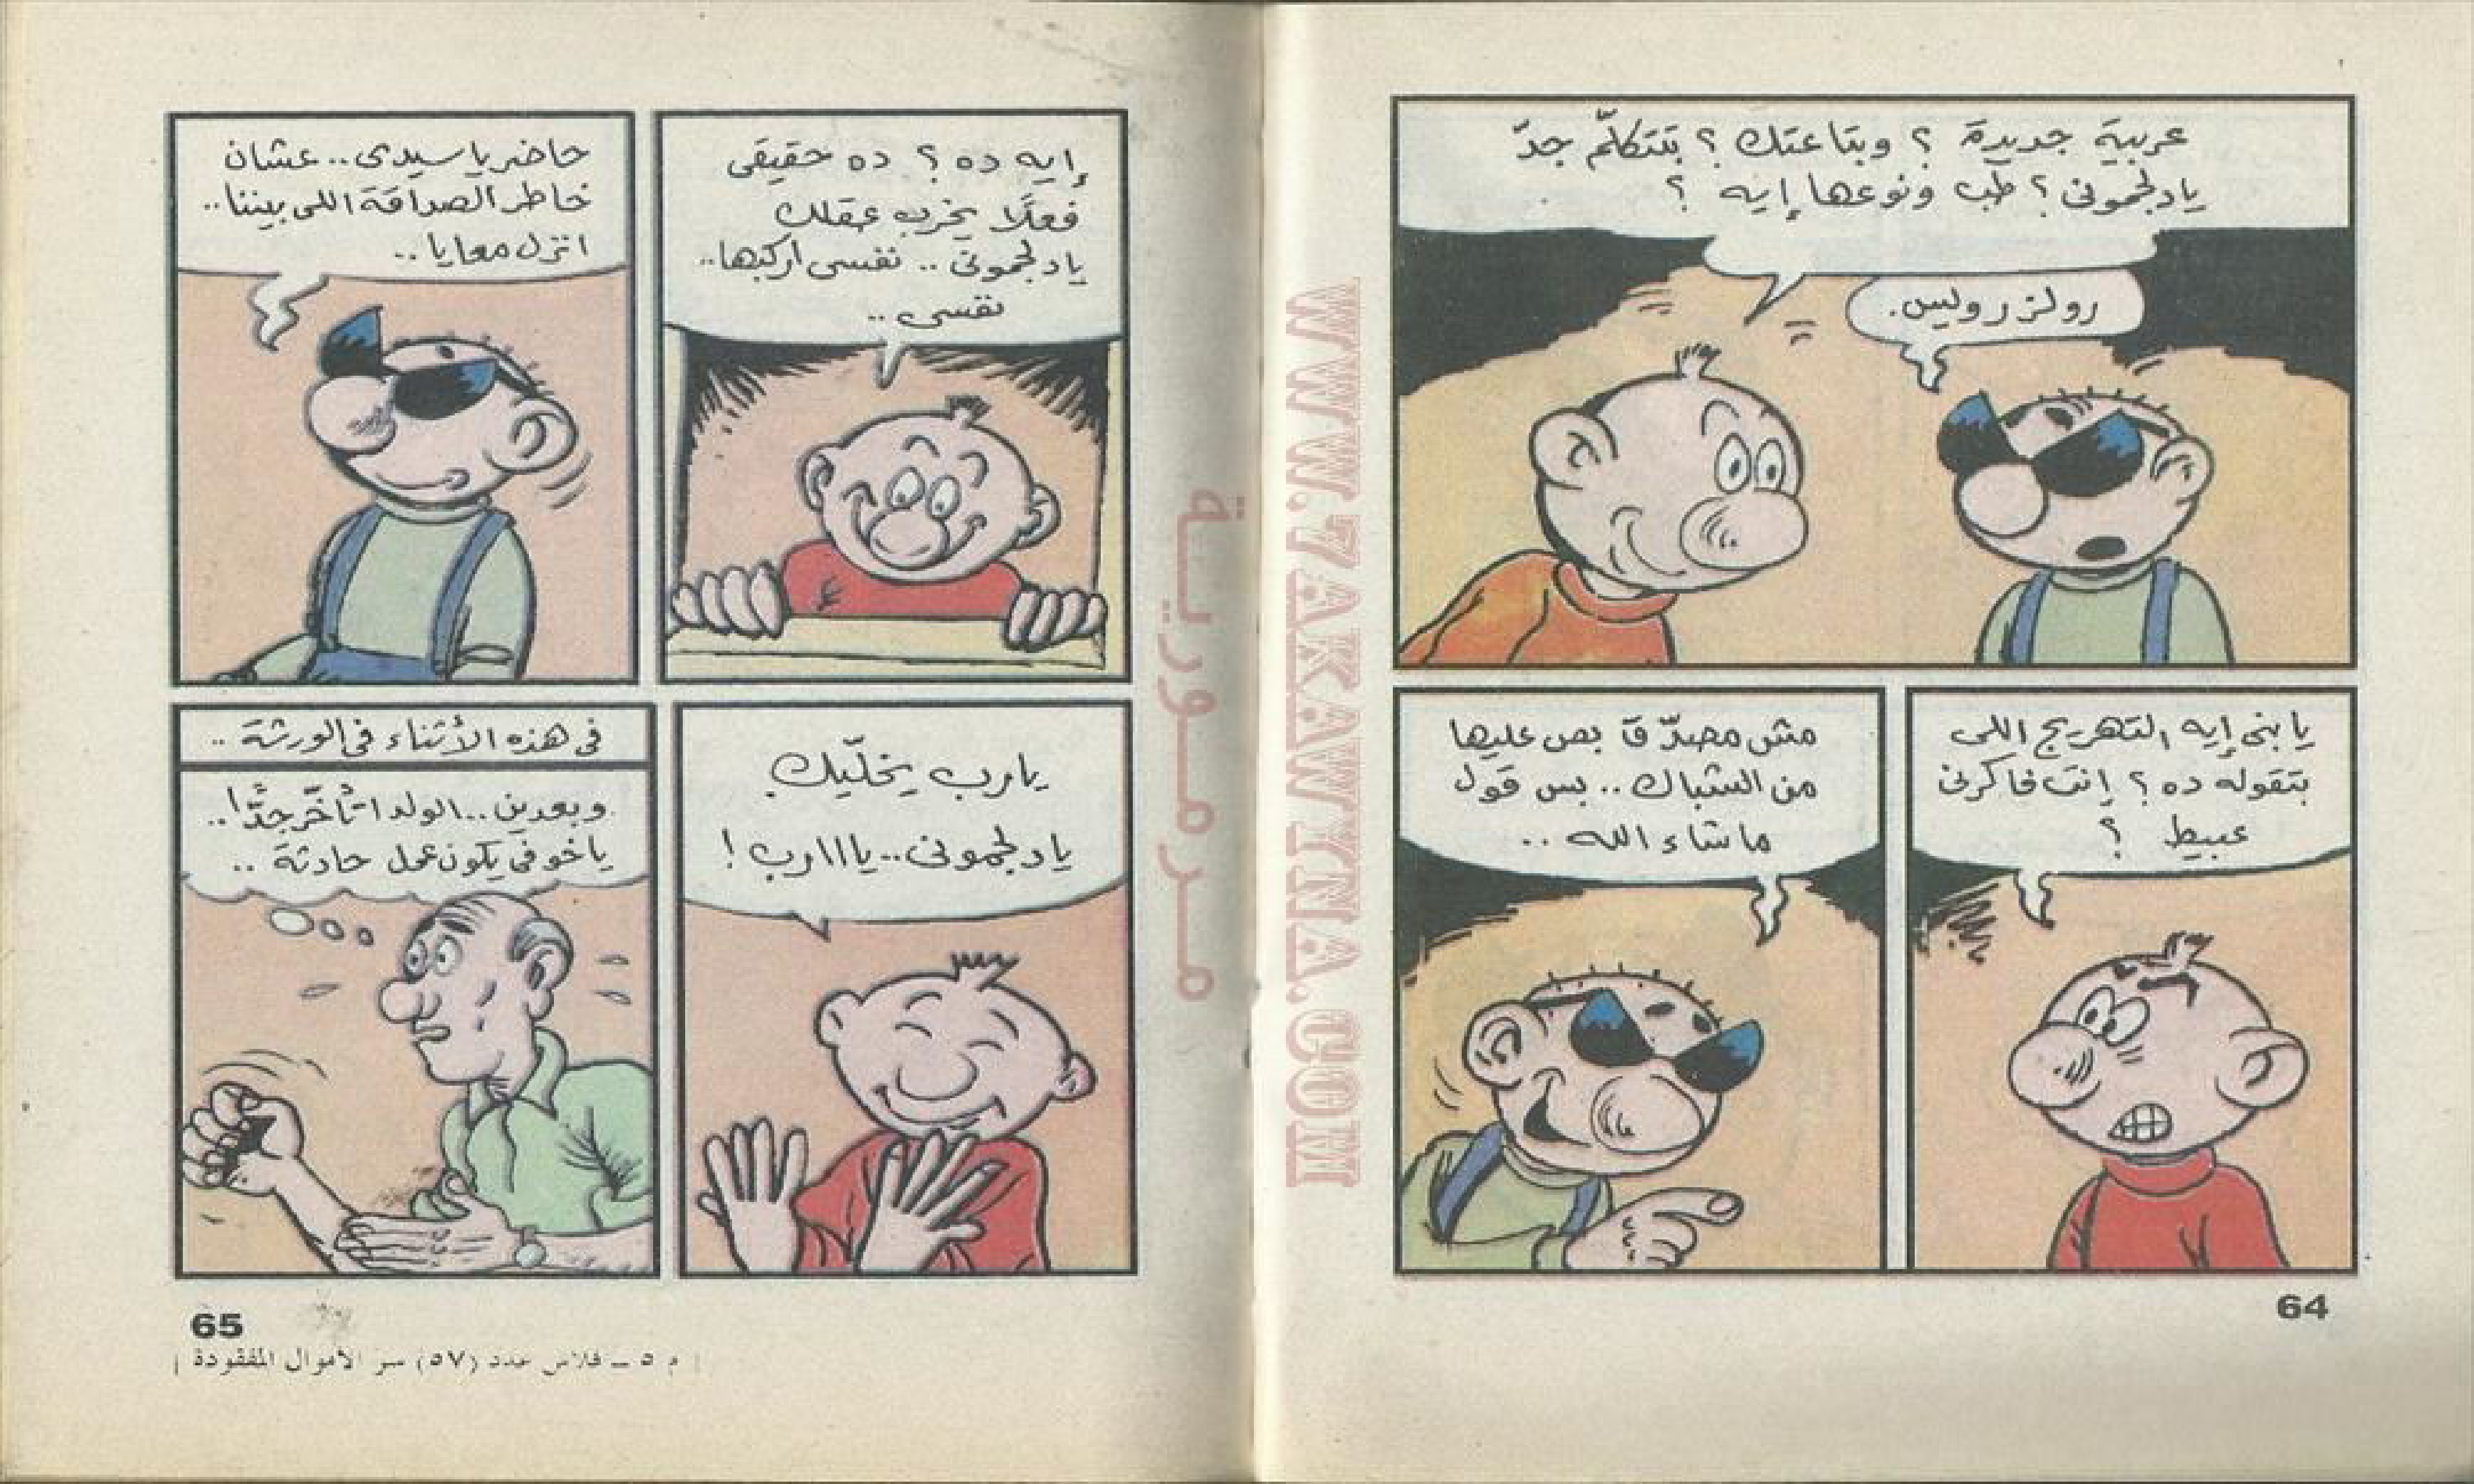 عربية جديدة ؟ وبتاعتك ؟ بتتكلّم جدّ
يادلجمونى ؟ طب ونوعها إيه ؟
رولز رويس.
يا بنى إيه التهريج اللى
بتقوله ده ؟ إنت فاكرنى
عبيط ؟
مش مصدّق بص عليها
من الشباك .. بس قول
ما شاء الله ..
64
إيه ده ؟ ده حقيقى
فعلًا يخرب عقلك
يادلجمونى .. نفسى اركبها..
نفسى ..
حاضر يا سيدى.. عشان
خاطر الصداقة اللى بيننا..
انزل معايا ..
يارب يخلّيك
يادلجمونى.. يااارب !
فى هذه الأثناء فى الورشة ..
وبعدين.. الولد اتأخّر جدًّا..
ياخوفى يكون عمل حادثة ..
65
[ م ٥ ــ فلاش عدد (٥٧) سر الأموال المفقودة ]
مـرمـوريـة
WWW.7AKAWYNA.COM